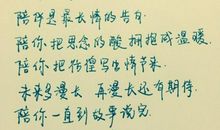 陪伴是最长情的告白
陪你把思念的酸拥抱成温暖
陪你把彷徨写出情节来
未来多漫长 再漫长还有期待
陪你一直到故事说完